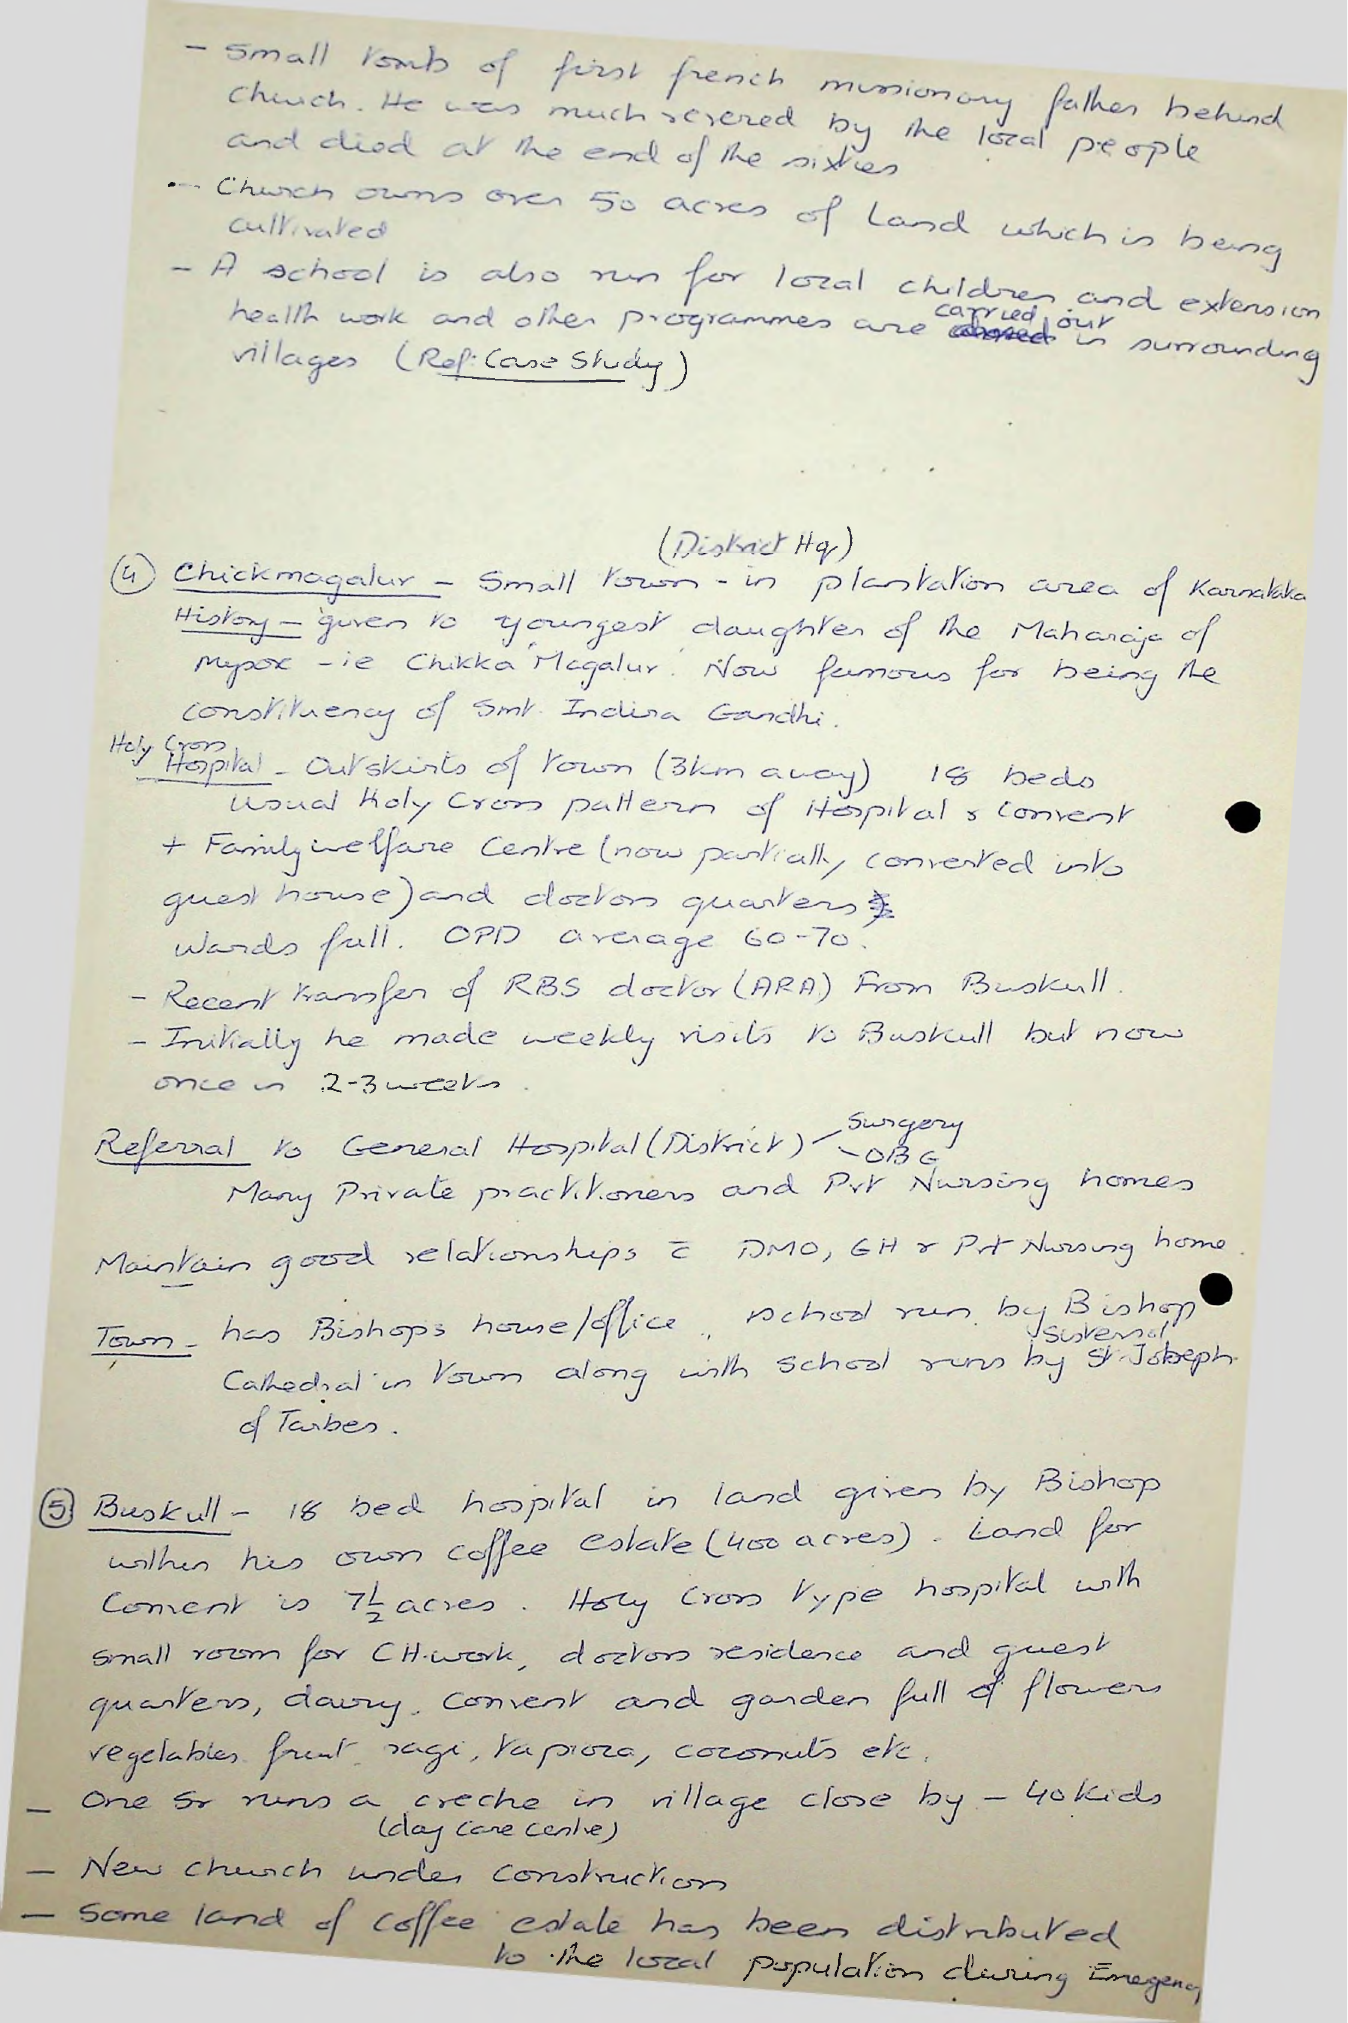 - Small tomb of first french missionary father behind
church. He was much revered by the local people
and died at the end of the sixties
- Church owns over 50 acres of land which is being
cultivated
- A school is also run for local children and extension
health work and other programmes are carried out in surrounding
villages (Ref: Case Study)
(District Hq)
(4) Chickmagalur - Small town - in plantation area of Karnataka
History - given to youngest daughter of the Maharaja of
Mysore - ie Chikka Magalur. Now famous for being the
constituency of Smt. Indira Gandhi.
Holy Cross
Hospital - Outskirts of town (3km away) 18 beds
Usual Holy Cross pattern of Hospital & Convent
+ Family welfare Centre (now partially converted into
guest house) and doctors quarters
Wards full. OPD average 60-70.
- Recent transfer of RBS doctor (ARA) from Buskull.
- Initially he made weekly visits to Buskull but now
once in 2-3 weeks.
Referral to General Hospital (District) - Surgery
- OBG
Many Private practitioners and Pvt Nursing homes
Maintain good relationships c̄ DMO, GH & Pvt Nursing home.
Town - has Bishops house/office, school run by Bishop
Cathedral in town along with school runs by Sisters of St. Joseph
of Tarbes.
(5) Buskull - 18 bed hospital in land given by Bishop
within his own coffee estate (400 acres). Land for
Convent is 7½ acres. Holy Cross type hospital with
small room for CH.work, doctors residence and guest
quarters, dairy. Convent and garden full of flowers
vegetables fruit ragi, tapioca, coconuts etc.
- One Sr runs a creche in village close by - 40 kids
(day care centre)
- New church under construction
- Some land of coffee estate has been distributed
to the local population during Emergency